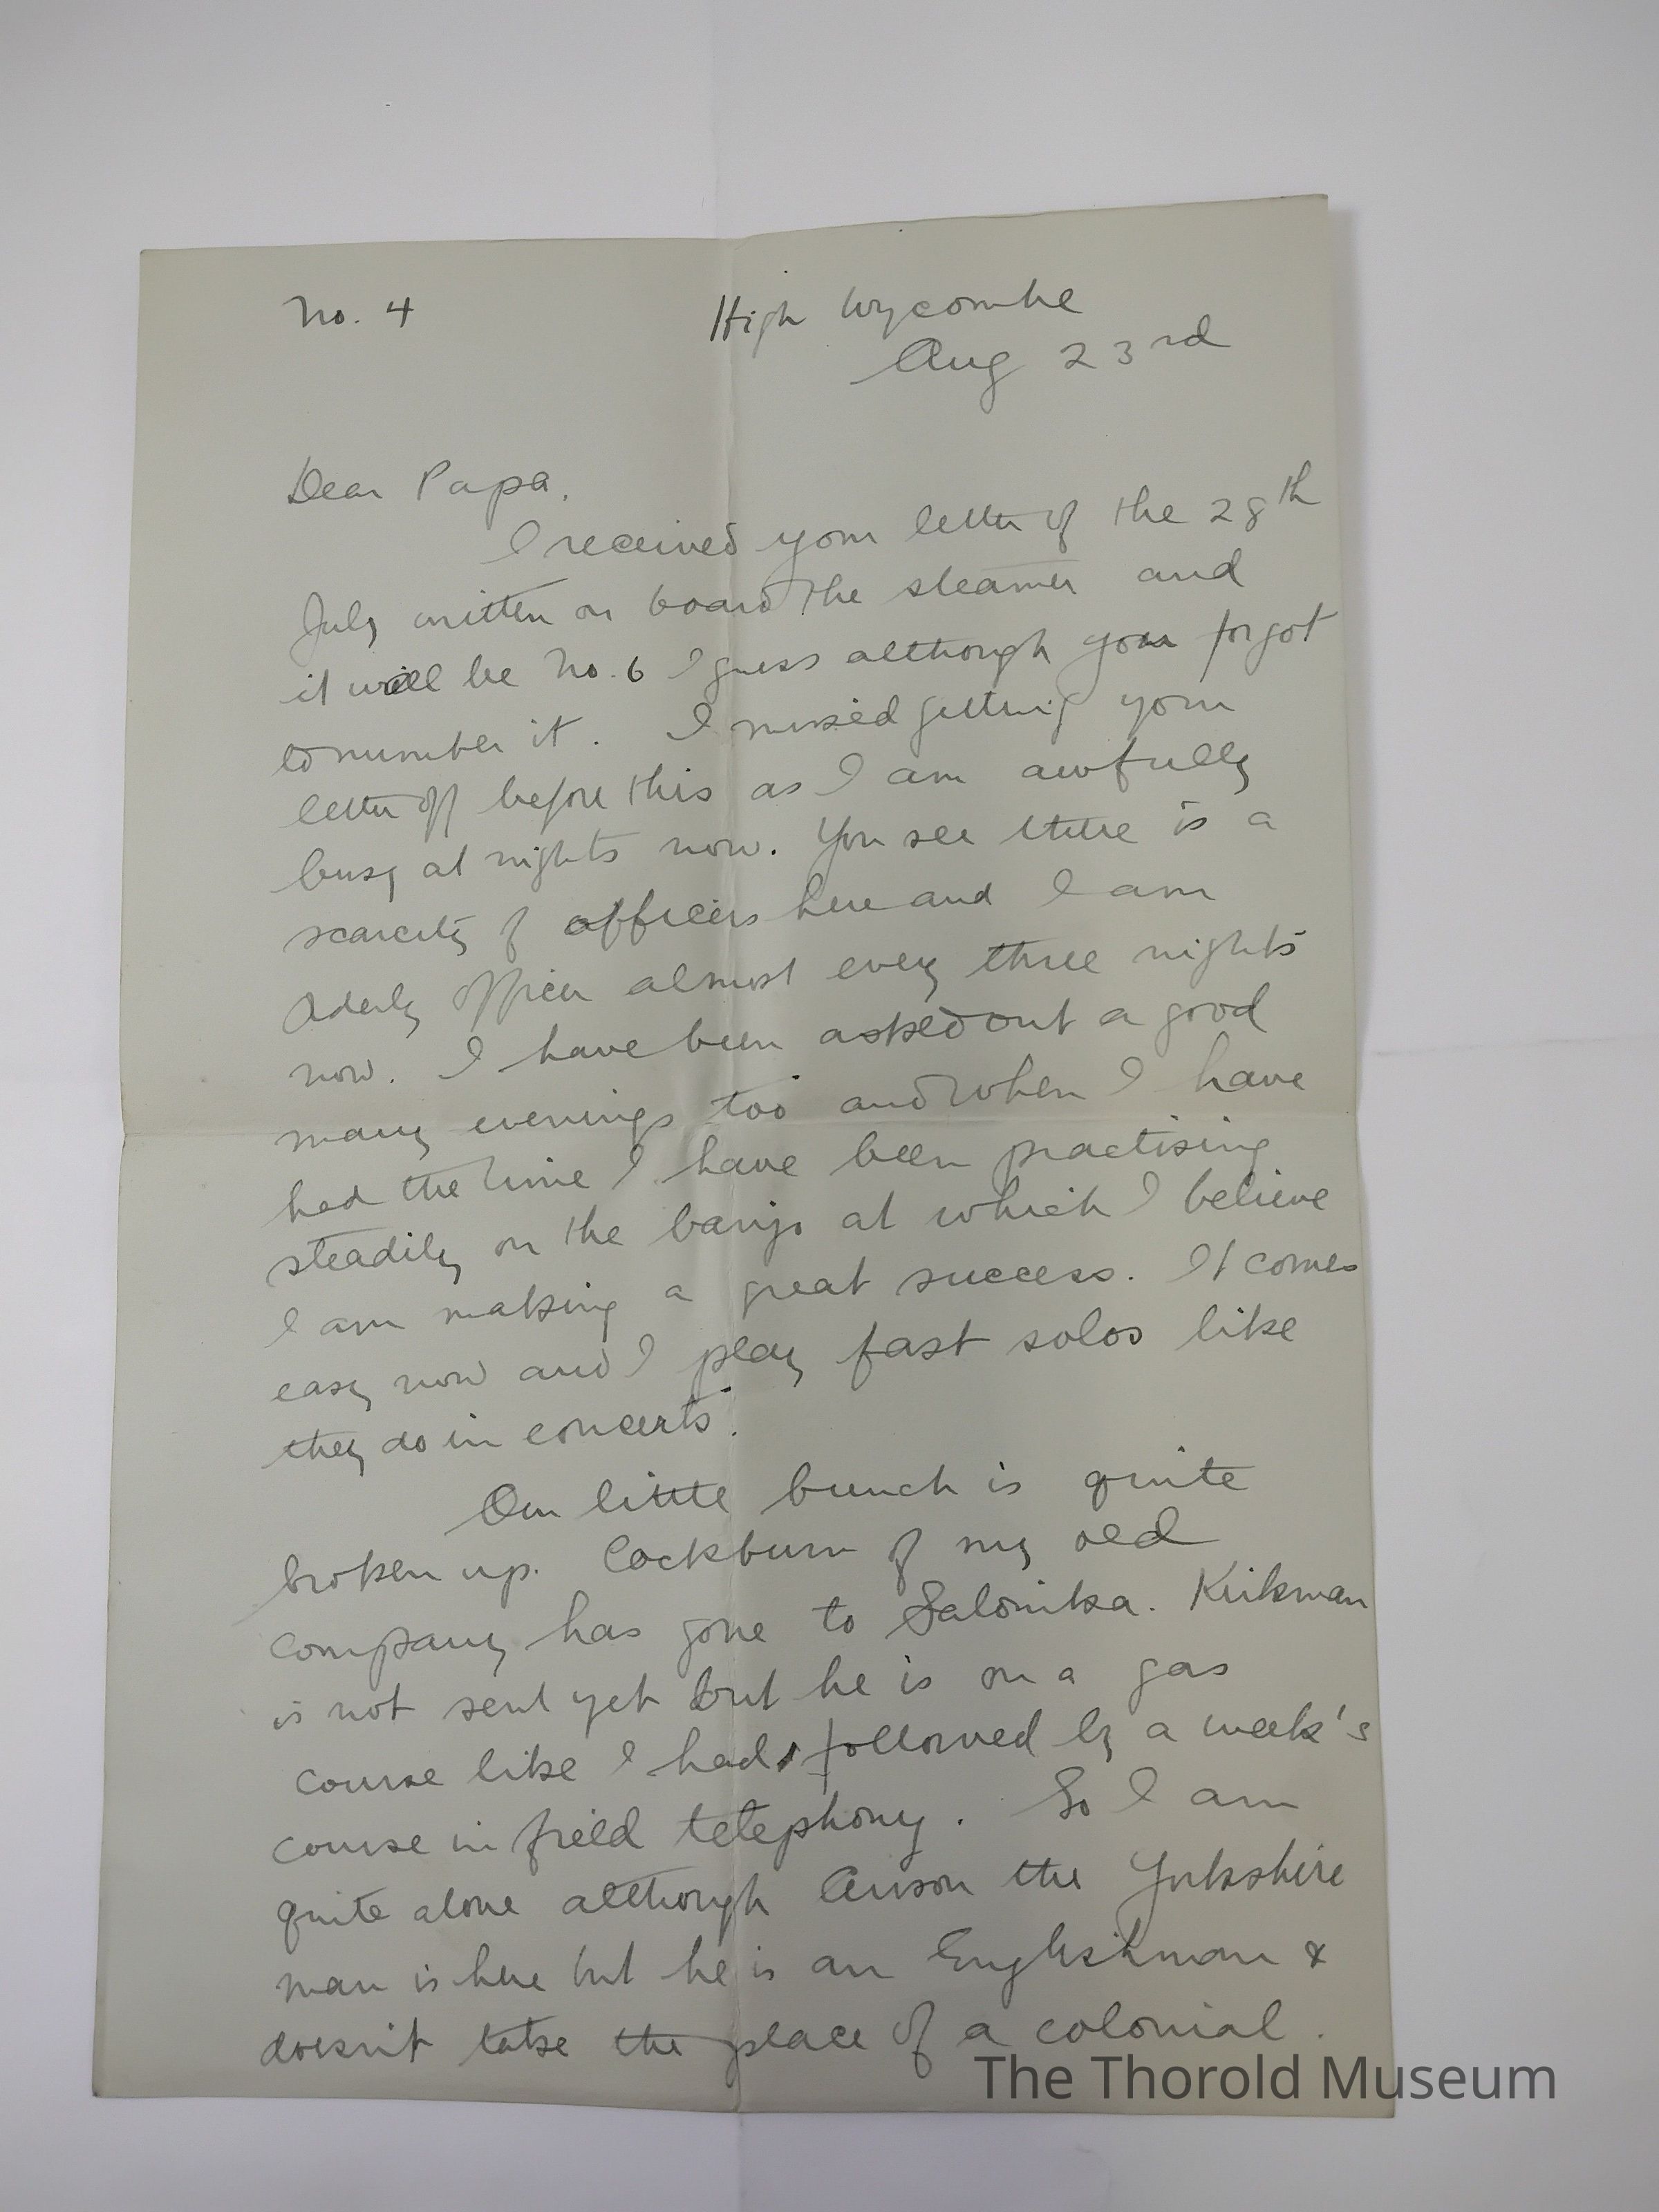 No. 4
High Wycombe
Aug 23rd
Dear Papa,
I received your letter of the 28th
July written on board the steamer and
it will be No. 6 I guess although you forgot
to number it. I missed getting your
letter off before this as I am awfully
busy at nights now. You see there is a
scarcity of officers here and I am
Orderly Officer almost every three nights
now. I have been asked out a good
many evenings too and when I have
had the time I have been practising
steadily on the banjo at which I believe
I am making a great success. It comes
easy now and I play fast solos like
they do in concerts.
Our little bunch is quite
broken up. Cockburn of my old
company has gone to Salonika. Kirkman
is not sent yet but he is on a gas
course like I had, followed by a week's
course in field telephony. So I am
quite alone although Anson the Yorkshire
man is here but he is an Englishman &
doesn't take the place of a colonial.
The Thorold Museum